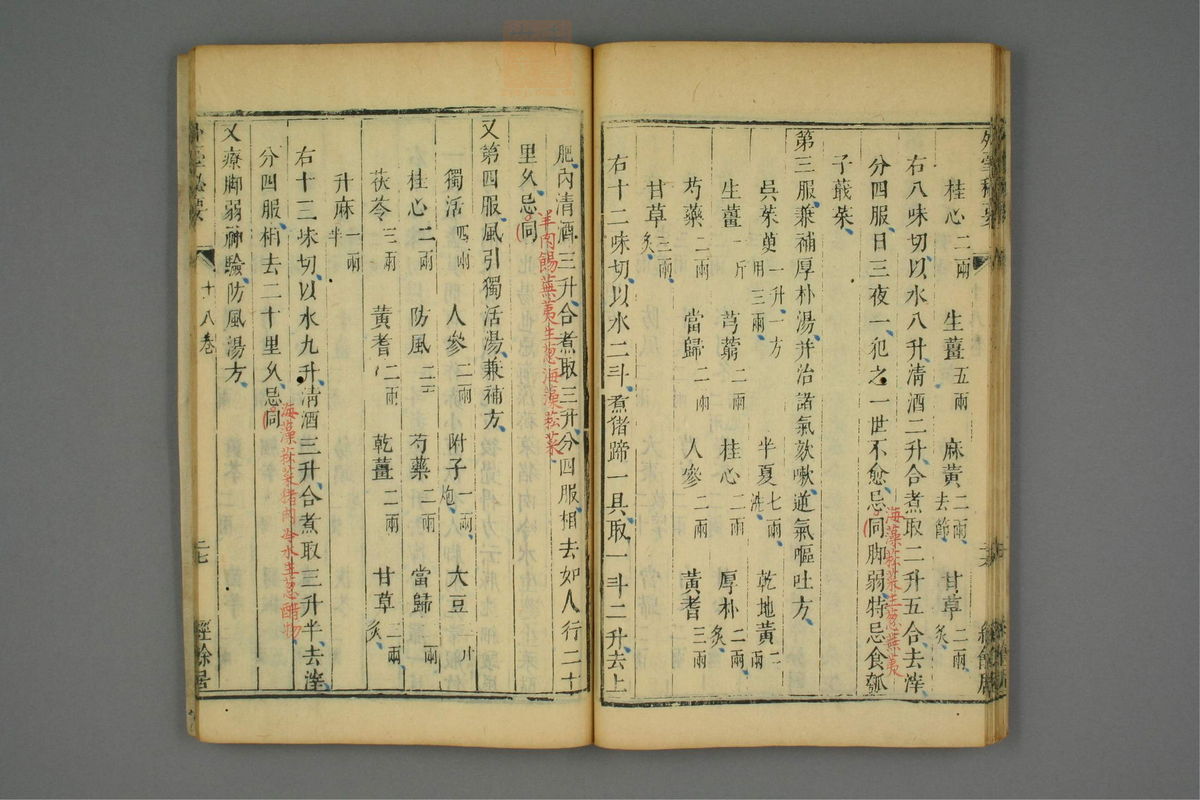 桂心二兩 生薑五兩 麻黃二兩去節 甘草二兩炙
右八味切以水八升清酒二升合煮取二升五合去滓
分四服日三夜一犯之一世不愈忌同脚弱特忌食瓠
海藻菘菜生葱蕪荑
子蕺菜
第三服兼補厚朴湯并治諸氣欬嗽逆氣嘔吐方
吳茱萸一升一方用三兩 半夏七兩洗 乾地黃二兩
生薑一斤 芎藭二兩 桂心二兩 厚朴二兩炙
芍藥二兩 當歸二兩 人參二兩 黃耆三兩
甘草三兩炙
右十二味切以水二斗煮猪蹄一具取一斗二升去上
肥內清酒三升合煮取三升分四服相去如人行二十
里久忌同
羊肉餳蕪荑生葱海藻菘菜
又第四服風引獨活湯兼補方
獨活四兩 人參二兩 附子一兩炮 大豆二升
桂心二兩 防風二兩 芍藥二兩 當歸二兩
茯苓三兩 黃耆二兩 乾薑二兩 甘草三兩炙
升麻一兩半
右十三味切以水九升清酒三升合煮取三升半去滓
分四服相去二十里久忌同
海藻菘菜猪肉冷水生葱醋物
又療脚弱神驗防風湯方
外臺秘要
十八卷
二七
經餘居